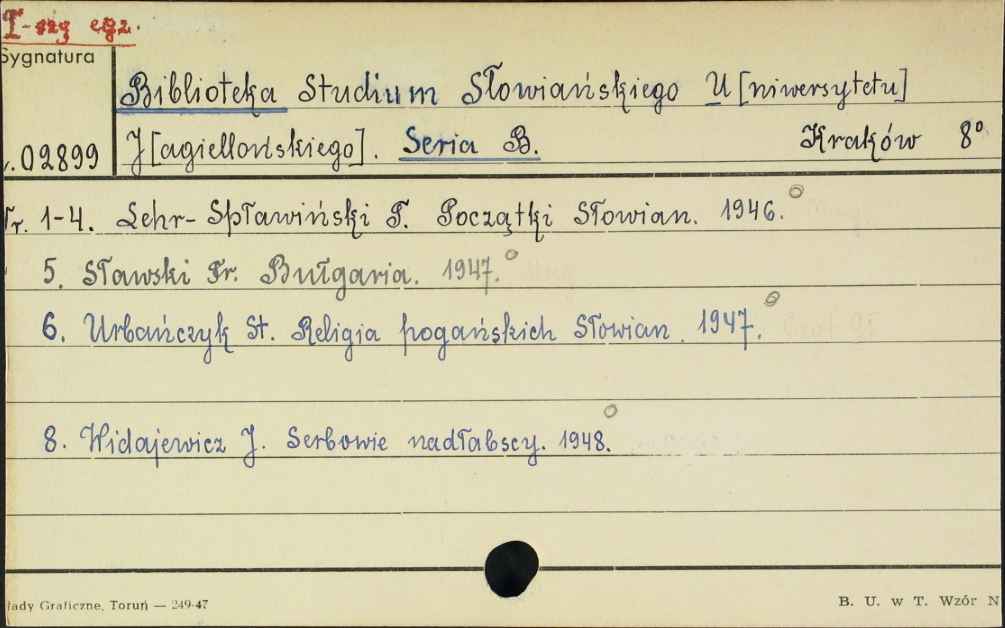 I-szy egz.
Sygnatura
Biblioteka Studium Słowiańskiego U[niwersytetu]
02899 J[agiellońskiego]. Seria B. Kraków 8°
Nr. 1-4. Lehr-Spławiński T. Początki Słowian. 1946.
5. Sławski Fr. Bułgaria. 1947.
6. Urbańczyk St. Religia pogańskich Słowian. 1947.
8. Widajewicz J. Serbowie nadłabscy. 1948.
łady Graficzne, Toruń — 249-47
B. U. w T. Wzór N